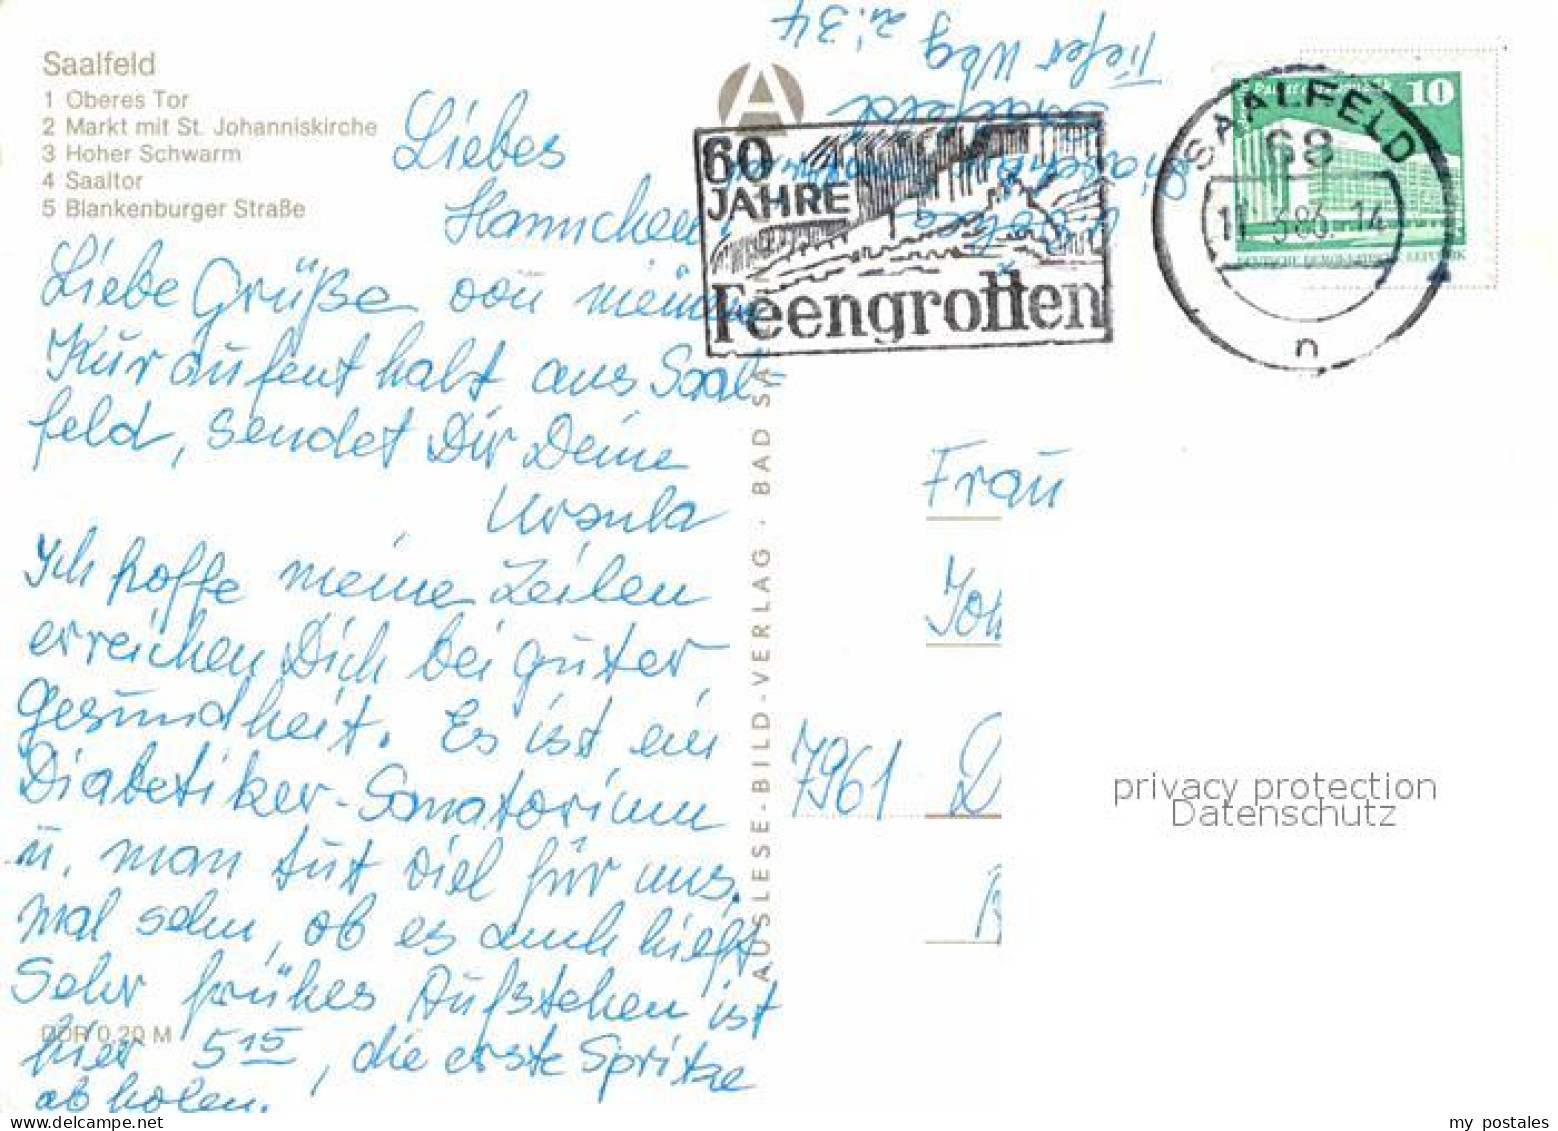 Saalfeld
1 Oberes Tor
2 Markt mit St. Johanniskirche
3 Hoher Schwarm
4 Saaltor
5 Blankenburger Straße
Liebes
Hannchen!
Liebe Grüße von meinem
Kuraufenthalt aus Saal=
feld, sendet Dir Deine
Ursula
Ich hoffe meine Zeilen
erreichen Dich bei guter
Gesundheit. Es ist ein
Diabetiker-Sanatorium
u. man tut viel für uns.
Mal sehn, ob es auch hilft
Sehr frühes Aufstehen ist
hier 5 15, die erste Spritze
abholen.
DDR 0,20 M
AUSLESE-BILD-VERLAG · BAD SA
A
Tiefer Weg
Z. 34
Saalfeld
60
JAHRE
Feengrotten
SAALFELD
68
11.3.83.14
n
10
Frau
Joh
7961 D
privacy protection
Datenschutz
my postales